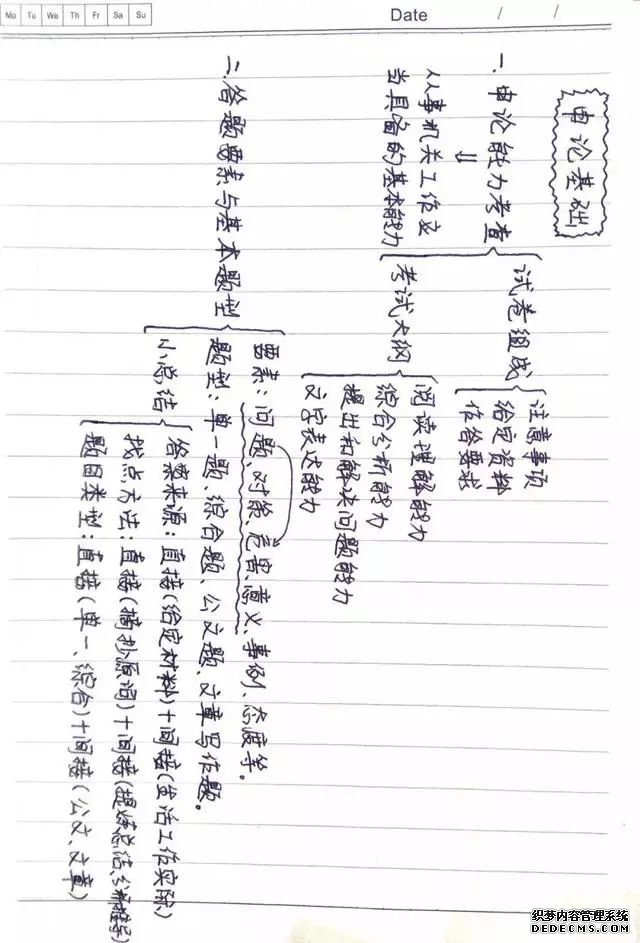 Mo Tu We Th Fr Sa Su
Date / /
申论基础
一、申论能力考查
从事机关工作应
当具备的基本能力
试卷组成
注意事项
给定资料
作答要求
考试大纲
阅读理解能力
综合分析能力
提出和解决问题能力
文字表达能力
二、答题要素与基本题型
要素：问题、对策、危害、意义、事例、态度等。
题型：单一题、综合题、公文题、文章写作题。
小总结
答案来源：直接(给定材料)+间接(生活工作实际)
找点方法：直接(摘抄原词)+间接(提炼总结、分析推导)
题目类型：直接(单一、综合)+间接(公文、文章)
织梦内容管理系统
DEDECMS.COM